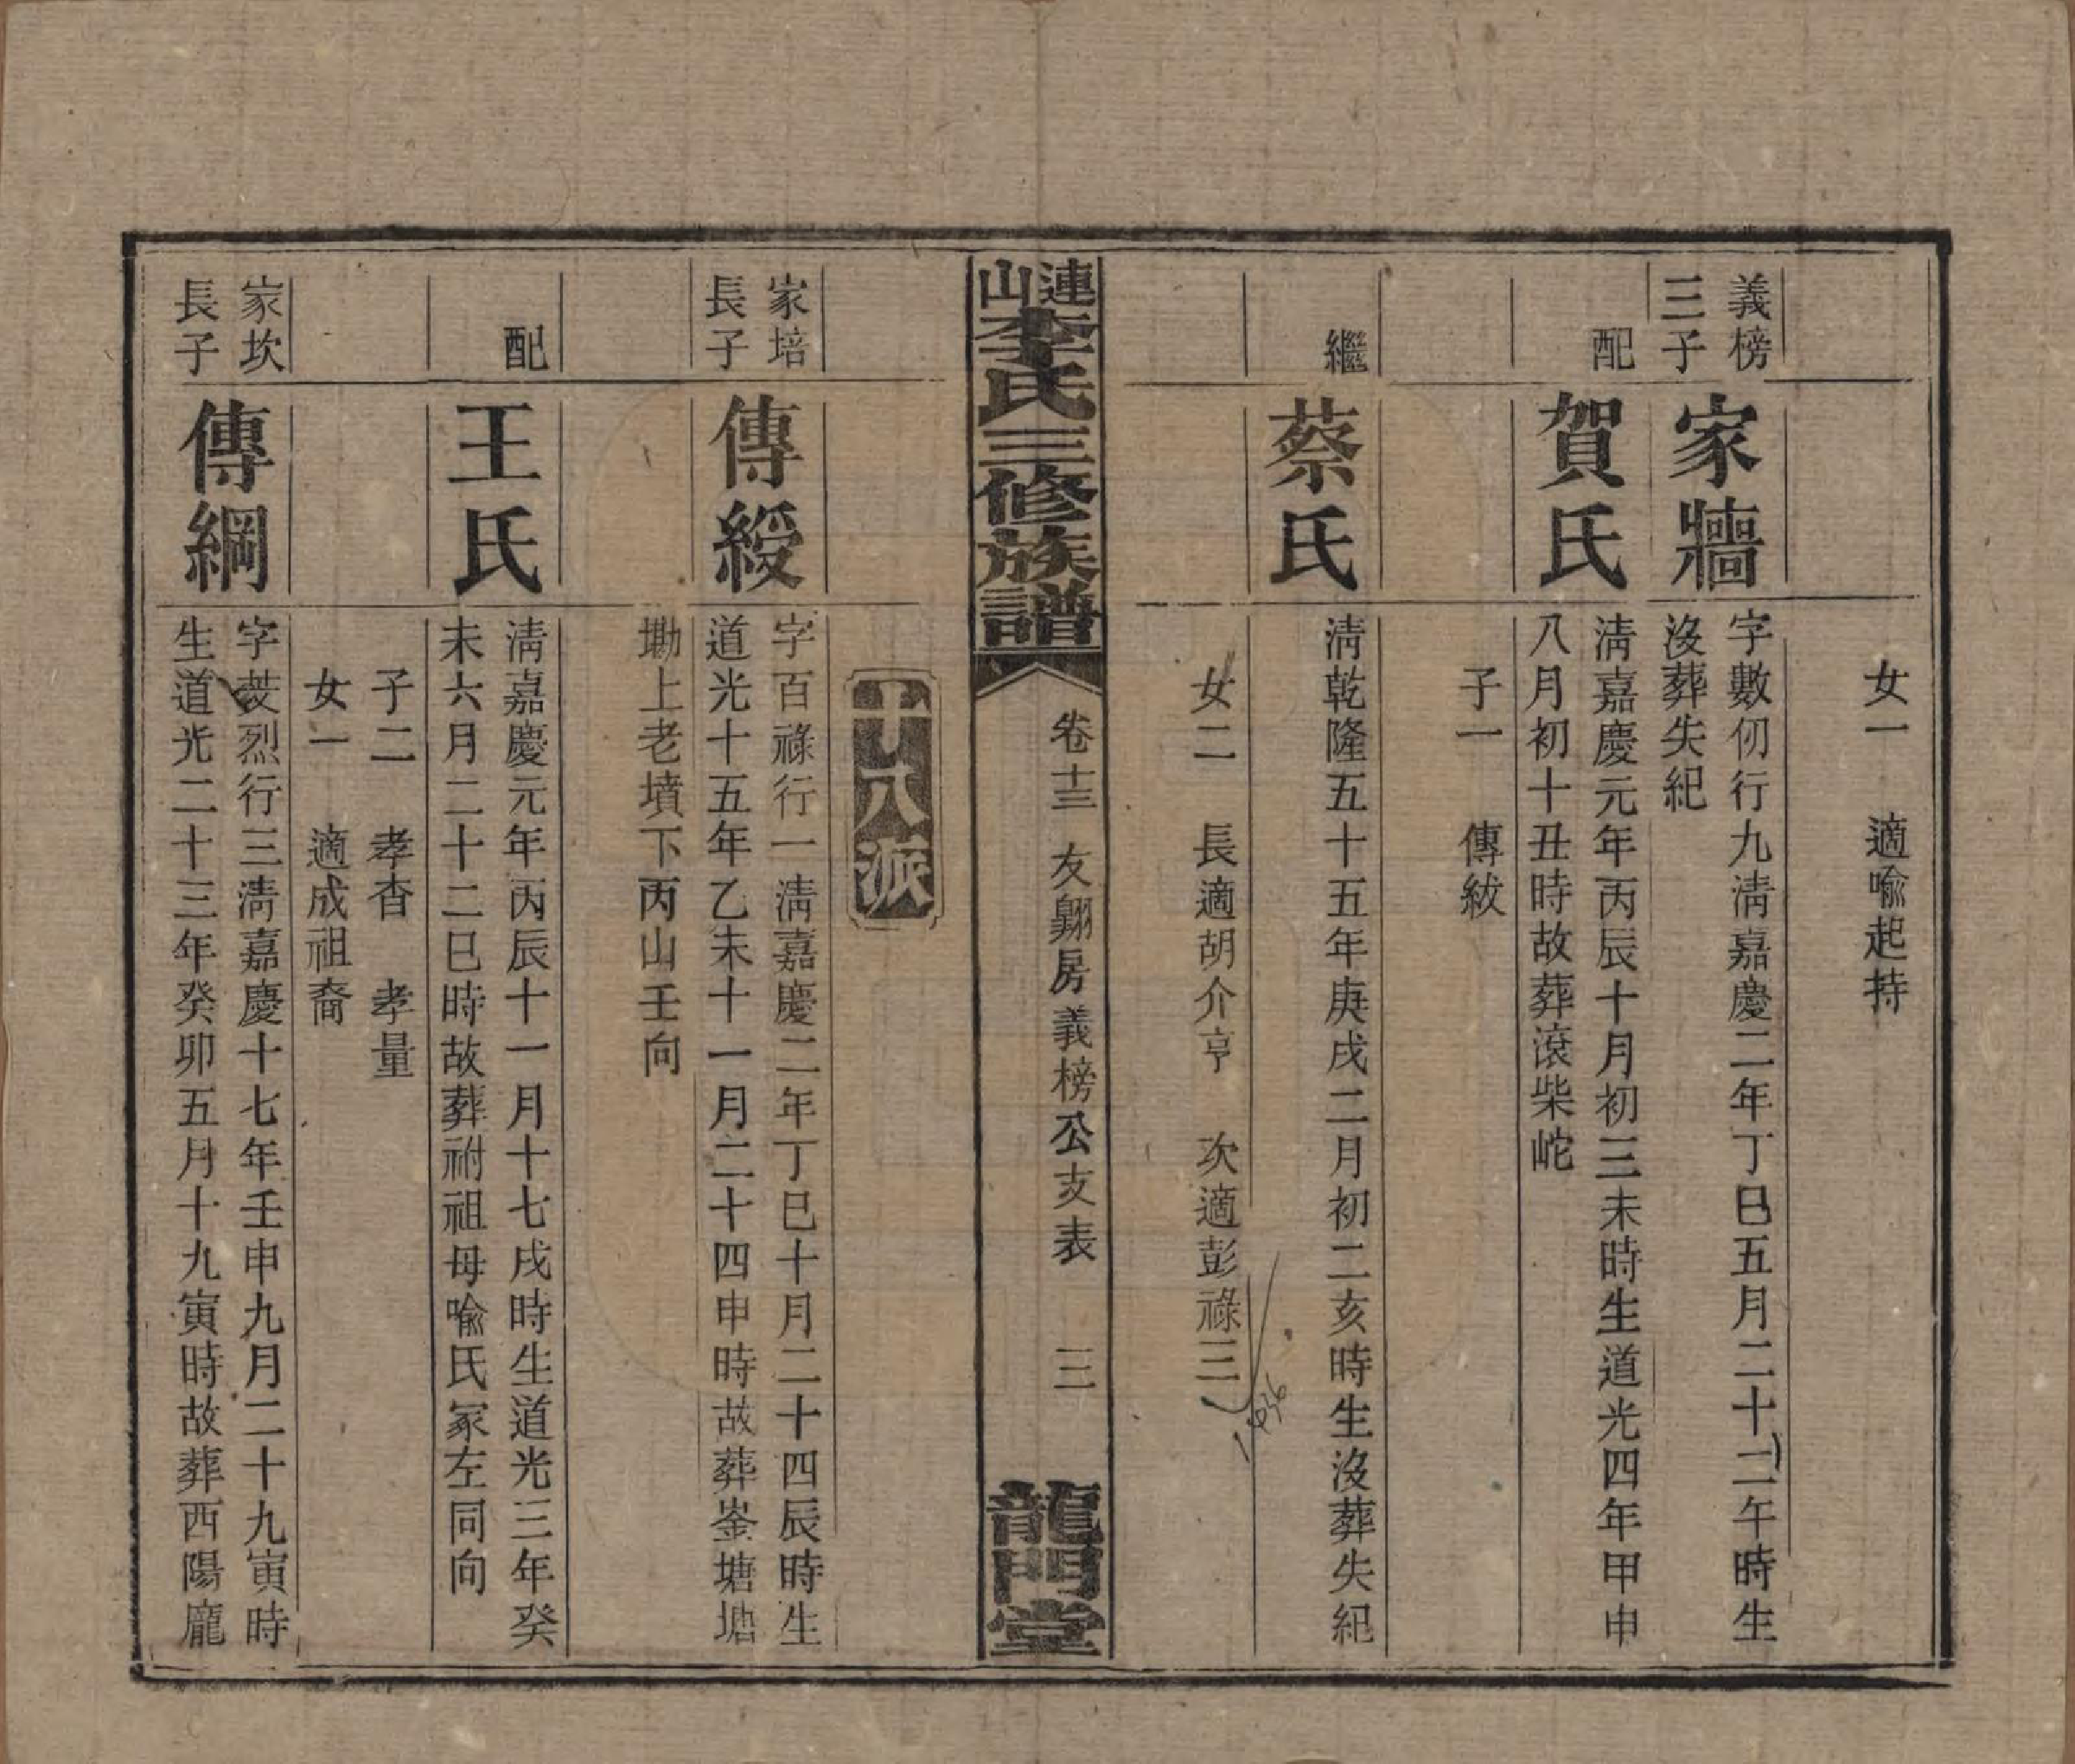 女一　適喻起持
義榜
三子
家牆
字數仞行九淸嘉慶二年丁巳五月二十二午時生
沒葬失紀
配
賀氏
淸嘉慶元年丙辰十月初三未時生道光四年甲申
八月初十丑時故葬滾柴𡶨
子一　傳紱
繼
蔡氏
淸乾隆五十五年庚戌二月初二亥時生沒葬失紀
女二　長適胡介亨　次適彭祿三
1936
連山李氏三修族譜
卷十三　友翺房義榜公支表　三
龍門堂
十八派
家培
長子
傳綬
字百祿行一淸嘉慶二年丁巳十月二十四辰時生
道光十五年乙未十一月二十四申時故葬崟塘塘
墈上老墳下丙山壬向
配
王氏
淸嘉慶元年丙辰十一月十七戌時生道光三年癸
未六月二十二巳時故葬祔祖母喻氏冢左同向
子二　孝杳　孝量
女一　適成祖裔
家坎
長子
傳綱
字烈行三淸嘉慶十七年壬申九月二十九寅時
生道光二十三年癸卯五月十九寅時故葬西陽龐